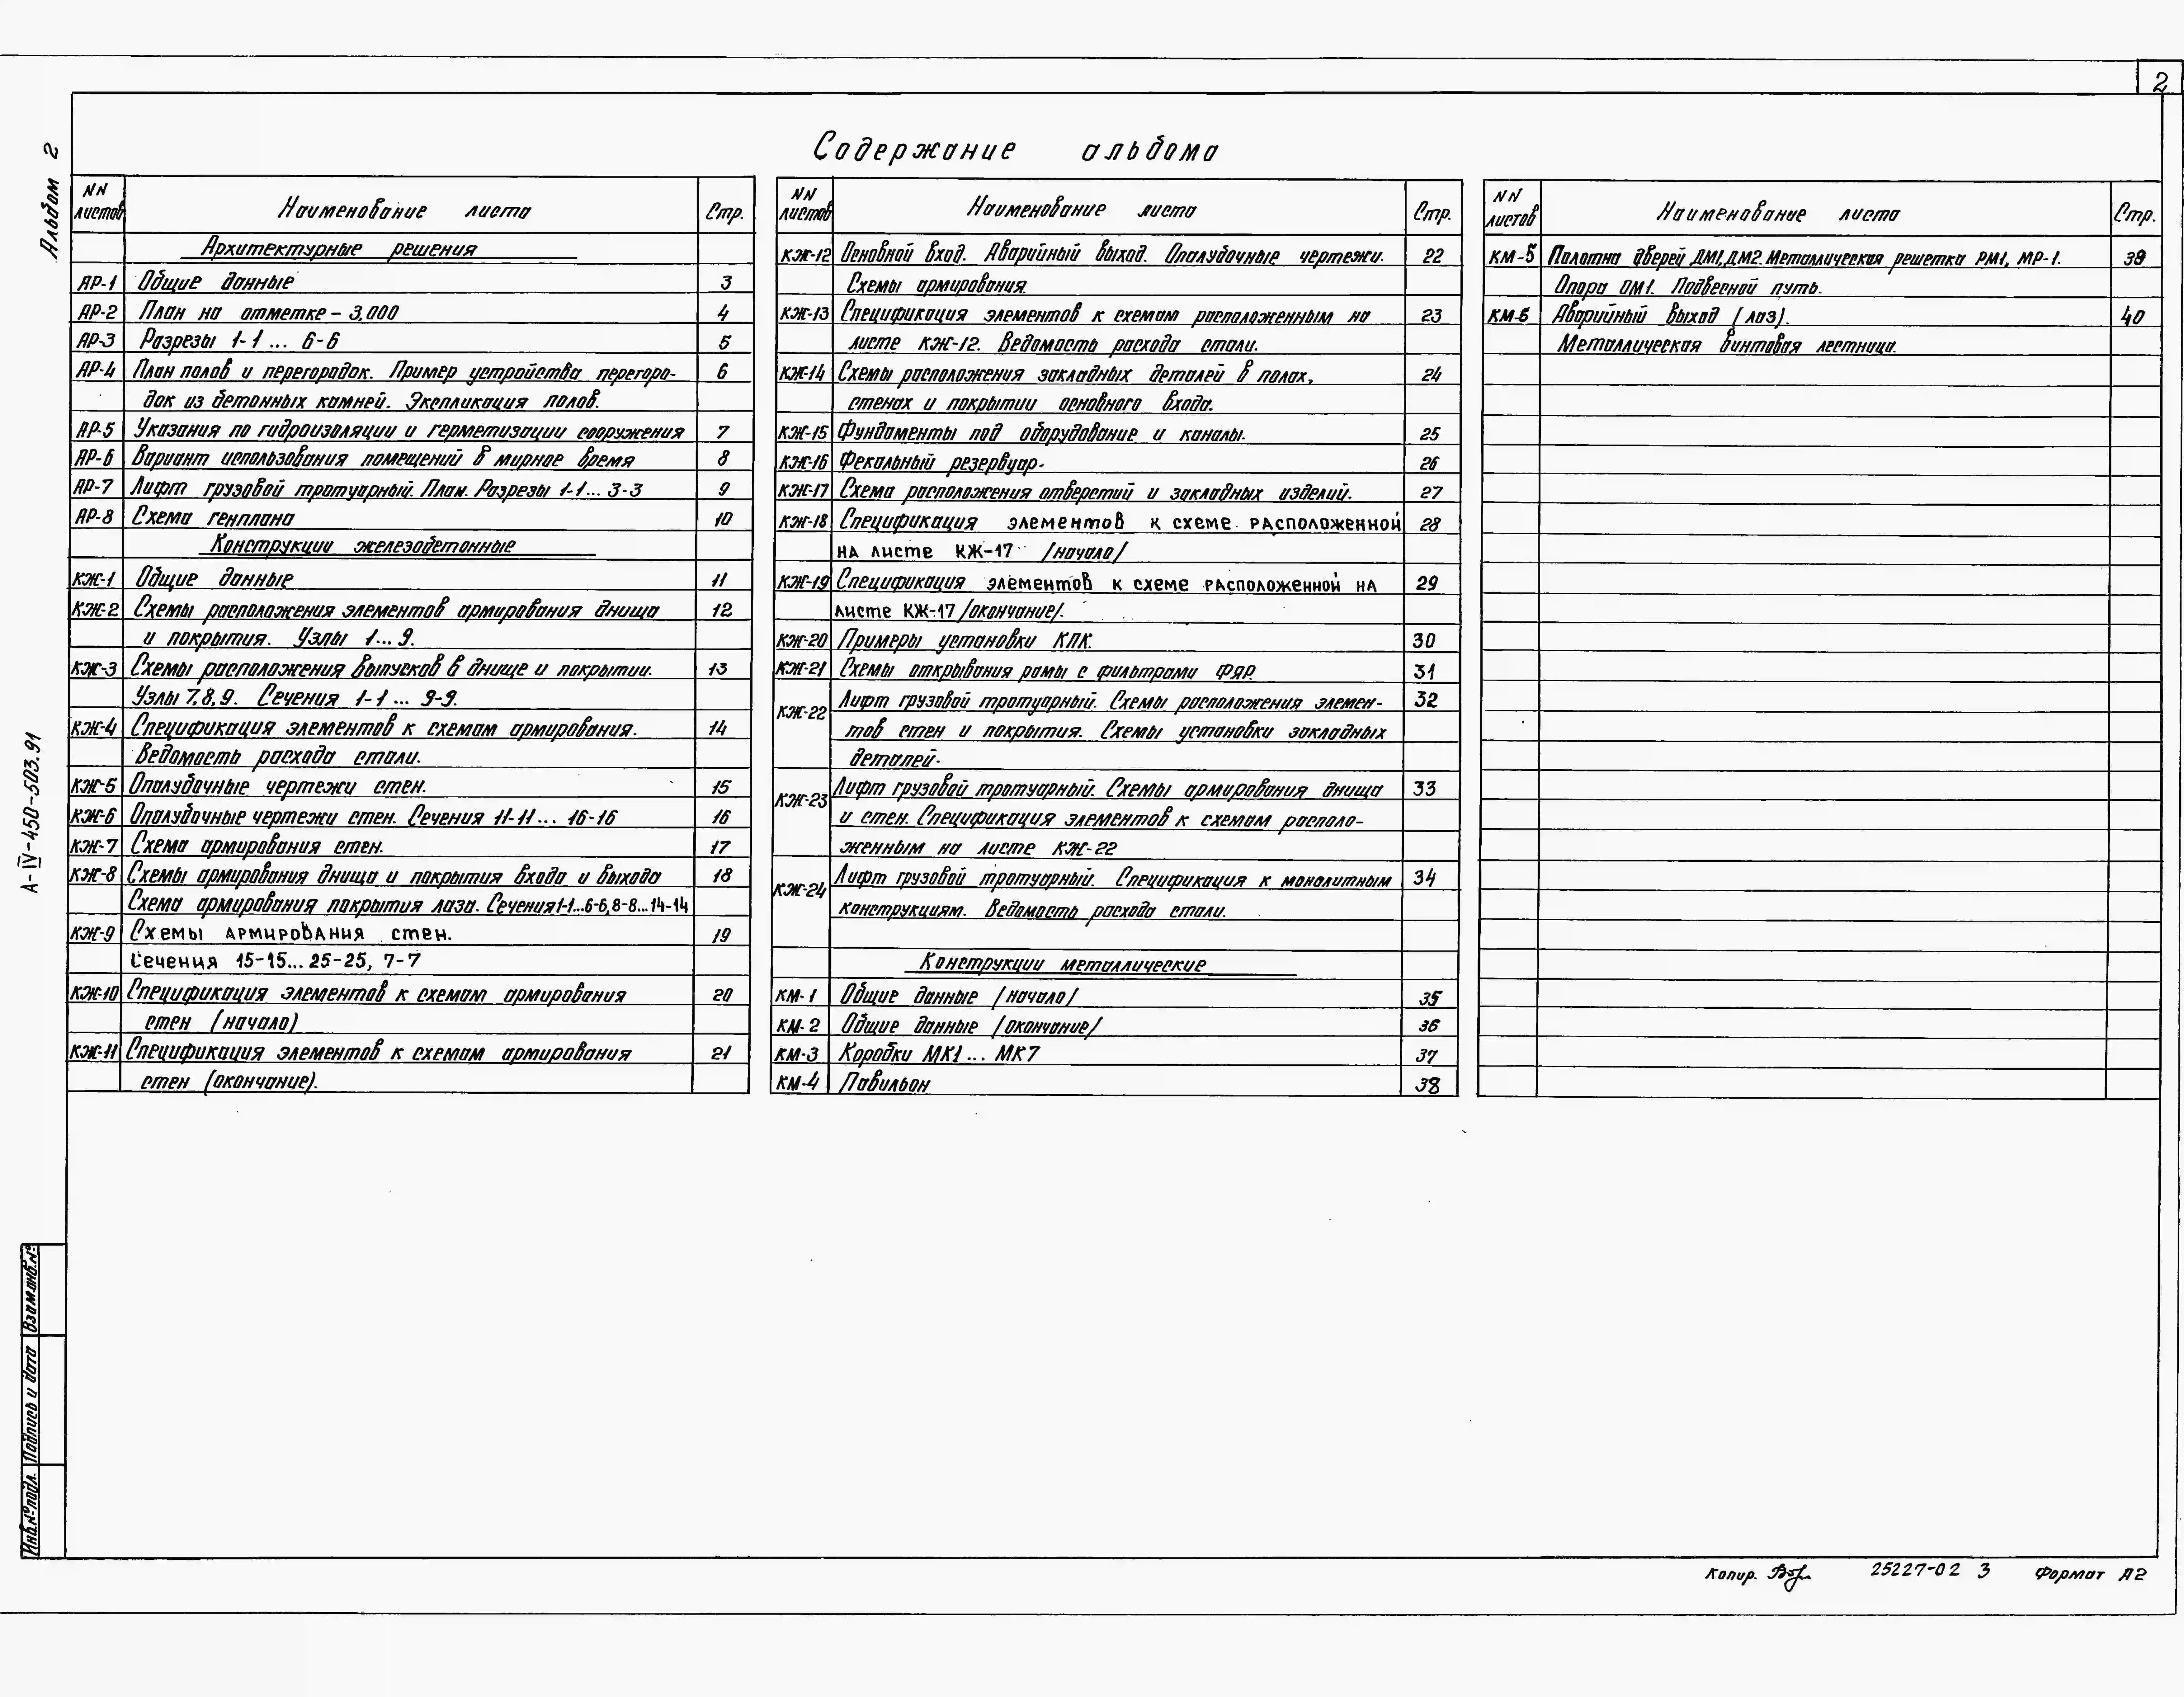 2
Альбом 2
Содержание альбома
NN листов Наименование листа Стр.
Архитектурные решения
АР-1 Общие данные 3
АР-2 План на отметке - 3,000 4
АР-3 Разрезы 1-1 ... 6-6 5
АР-4 План полов и перегородок. Пример устройства перегоро- 6
док из бетонных камней. Экспликация полов.
АР-5 Указания по гидроизоляции и герметизации сооружения 7
АР-6 Вариант использования помещений в мирное время 8
АР-7 Лифт грузовой тротуарный. План. Разрезы 1-1... 3-3 9
АР-8 Схема генплана 10
Конструкции железобетонные
КЖ-1 Общие данные 11
КЖ-2 Схемы расположения элементов армирования днища 12
и покрытия. Узлы 1...9.
КЖ-3 Схемы расположения выпусков в днище и покрытии. 13
Узлы 7,8,9. Сечения 1-1 ... 9-9.
КЖ-4 Спецификация элементов к схемам армирования. 14
Ведомость расхода стали.
КЖ-5 Опалубочные чертежи стен. 15
КЖ-6 Опалубочные чертежи стен. Сечения 11-11... 16-16 16
КЖ-7 Схема армирования стен. 17
КЖ-8 Схемы армирования днища и покрытия входа и выхода 18
Схема армирования покрытия лаза. Сечения 1-1...6-6, 8-8...14-14
КЖ-9 Схемы армирования стен. 19
Сечения 15-15... 25-25, 7-7
КЖ-10 Спецификация элементов к схемам армирования 20
стен (начало)
КЖ-11 Спецификация элементов к схемам армирования 21
стен (окончание).
NN листов Наименование листа Стр.
КЖ-12 Основной вход. Аварийный выход. Опалубочные чертежи. 22
Схемы армирования.
КЖ-13 Спецификация элементов к схемам расположенным на 23
листе КЖ-12. Ведомость расхода стали.
КЖ-14 Схемы расположения закладных деталей в полах, 24
стенах и покрытии основного входа.
КЖ-15 Фундаменты под оборудование и каналы. 25
КЖ-16 Фекальный резервуар. 26
КЖ-17 Схема расположения отверстий и закладных изделий. 27
КЖ-18 Спецификация элементов к схеме расположенной 28
на листе КЖ-17 /начало/
КЖ-19 Спецификация элементов к схеме расположенной на 29
листе КЖ-17 /окончание/.
КЖ-20 Примеры установки КПК. 30
КЖ-21 Схемы открывания рамы с фильтрами ФЯР. 31
КЖ-22 Лифт грузовой тротуарный. Схемы расположения элемен- 32
тов стен и покрытия. Схемы установки закладных
деталей.
КЖ-23 Лифт грузовой тротуарный. Схемы армирования днища 33
и стен. Спецификация элементов к схемам располо-
женным на листе КЖ-22
КЖ-24 Лифт грузовой тротуарный. Спецификация к монолитным 34
конструкциям. Ведомость расхода стали.
Конструкции металлические
КМ-1 Общие данные /начало/ 35
КМ-2 Общие данные /окончание/ 36
КМ-3 Коробки МК1... МК7 37
КМ-4 Павильон 38
NN листов Наименование листа Стр.
КМ-5 Полотна дверей ДМ1, ДМ2. Металлическая решетка РМ1, МР-1. 39
Опора ОМ1. Подвесной путь.
КМ-6 Аварийный выход (лаз). 40
Металлическая винтовая лестница.
А-IV-450-503.91
Взам.инв.№
Подпись и дата
Инв.№подл.
Копир. 25227-02 3 Формат А2